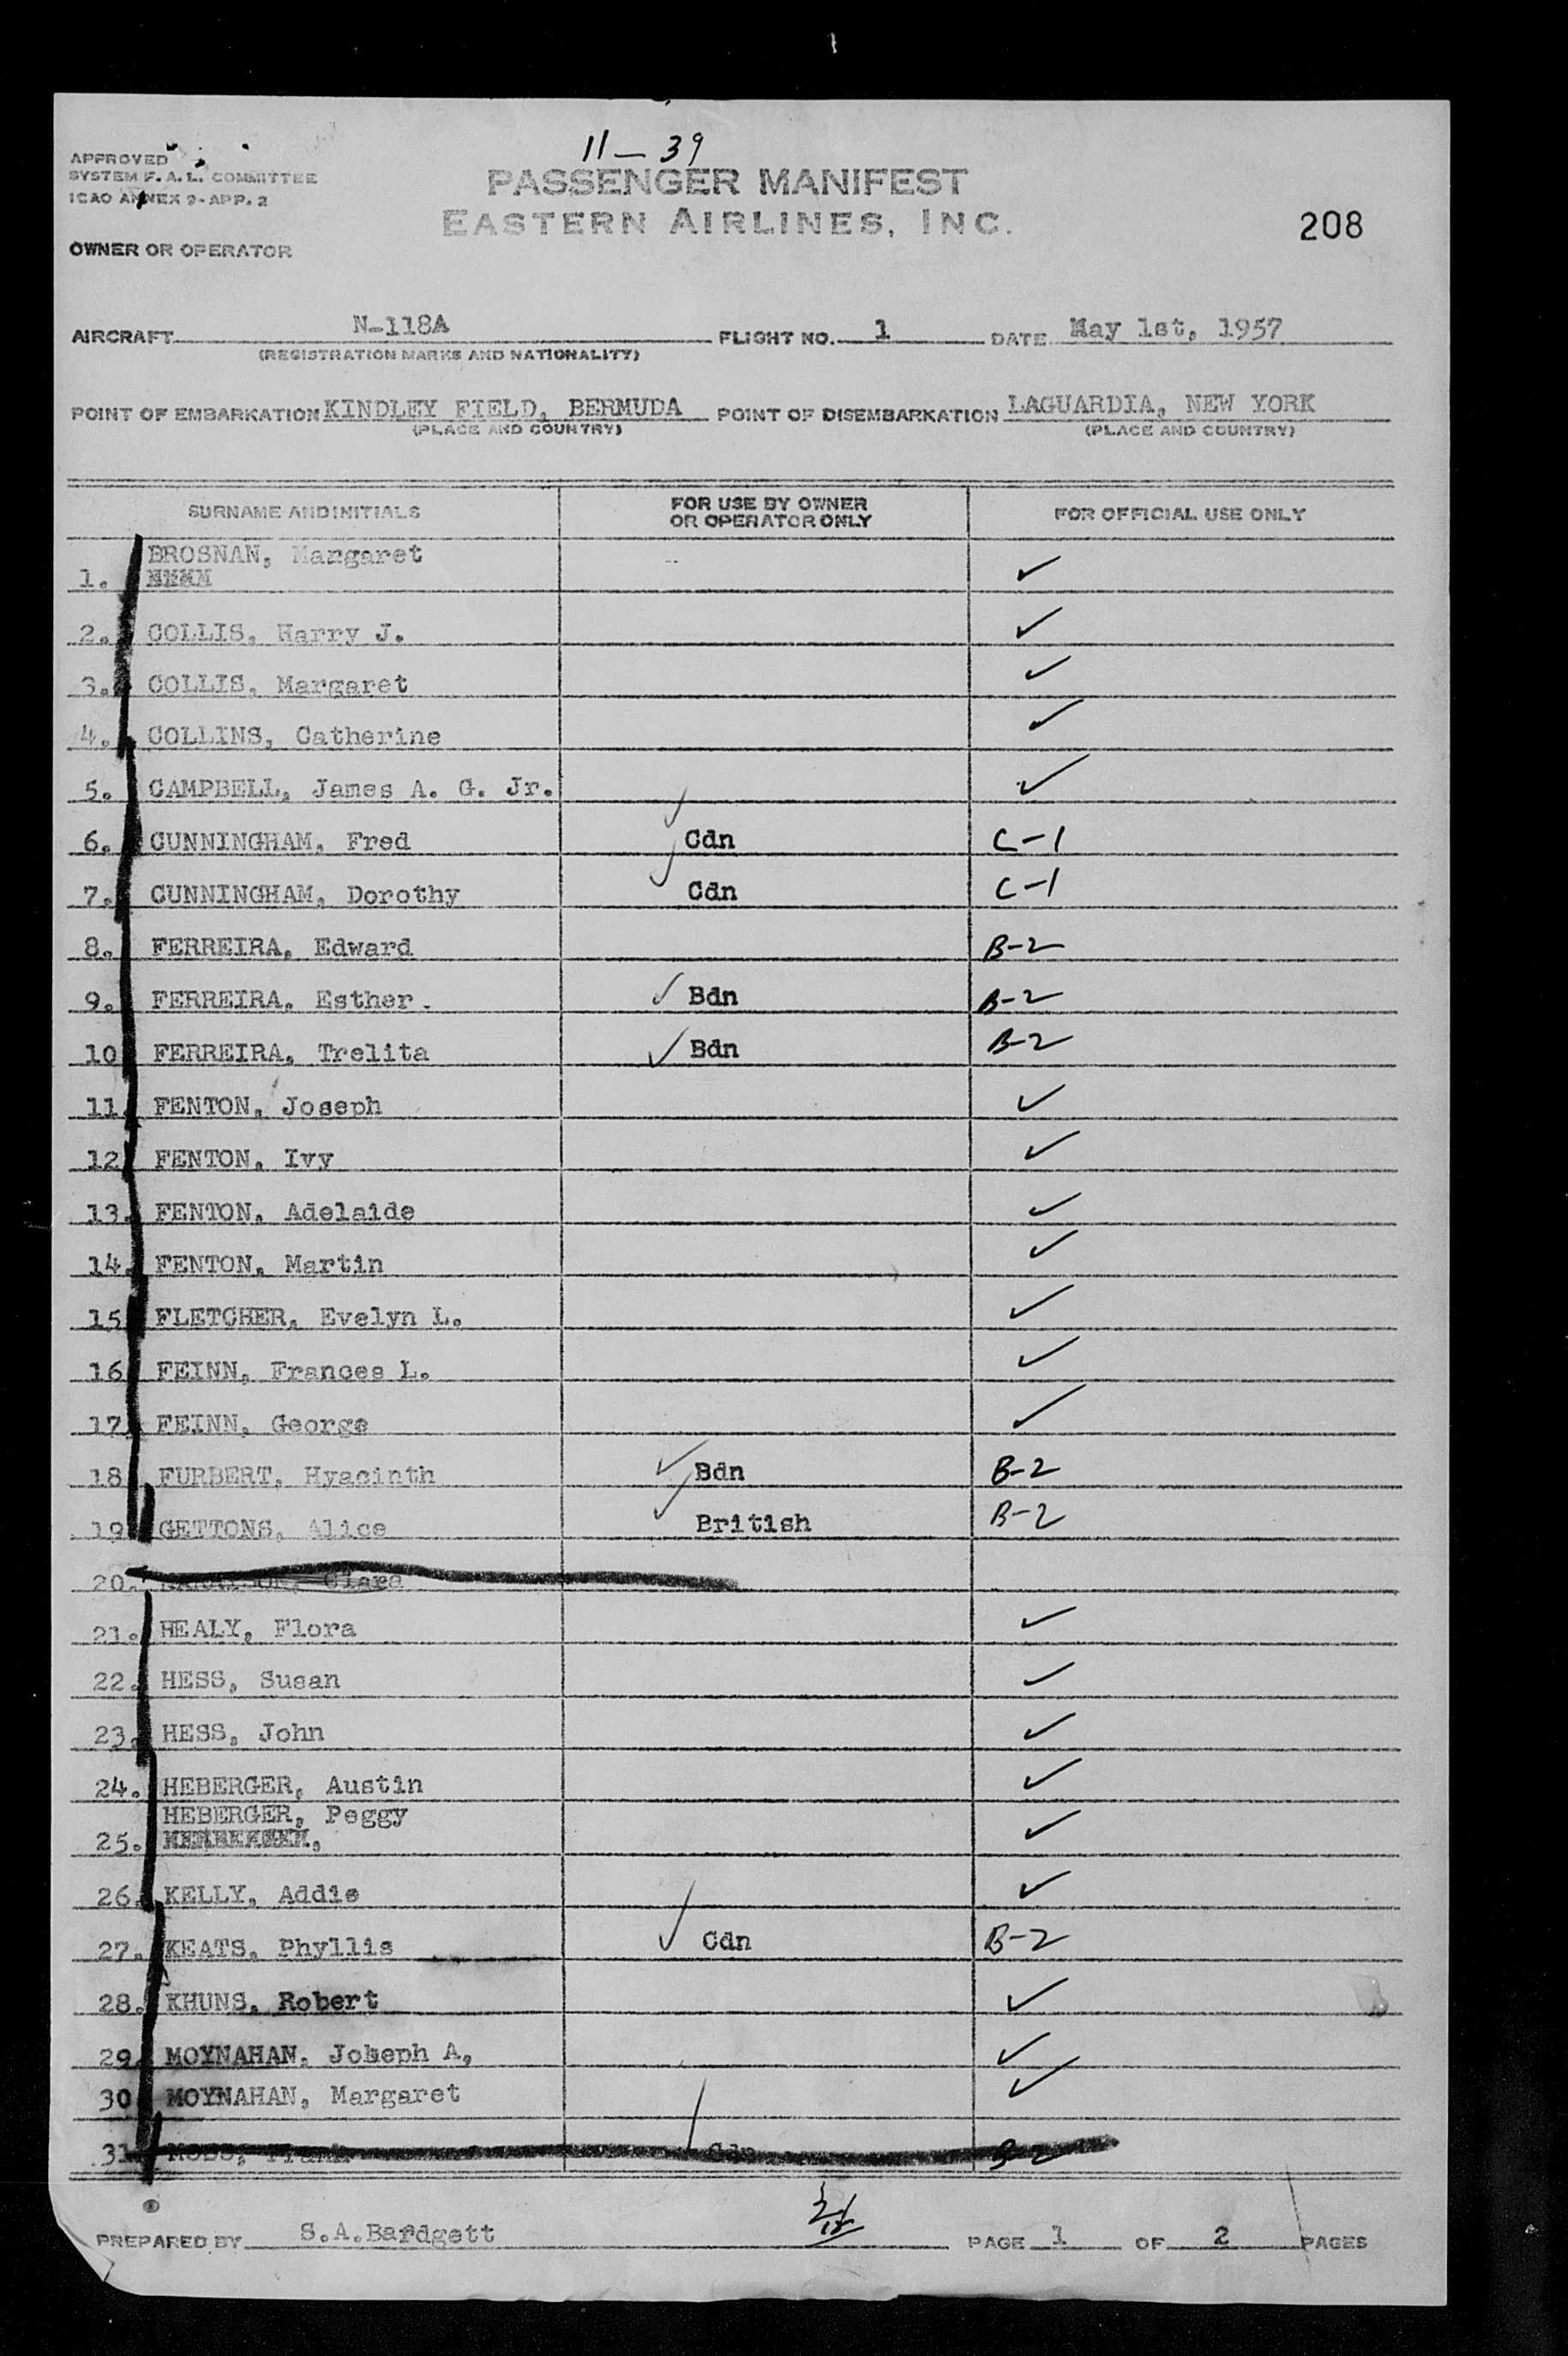 11-39
APPROVED
SYSTEM F.A.L. COMMITTEE
ICAO ANNEX 9-APP. 2
PASSENGER MANIFEST
EASTERN AIRLINES, INC.
208
OWNER OR OPERATOR
AIRCRAFT N-118A FLIGHT NO. 1 DATE May 1st, 1957
(REGISTRATION MARKS AND NATIONALITY)
POINT OF EMBARKATION KINDLEY FIELD, BERMUDA POINT OF DISEMBARKATION LAGUARDIA, NEW YORK
(PLACE AND COUNTRY) (PLACE AND COUNTRY)
SURNAME AND INITIALS FOR USE BY OWNER OR OPERATOR ONLY FOR OFFICIAL USE ONLY
1. BROSNAN, Margaret ✓
2. COLLIS, Harry J. ✓
3. COLLIS, Margaret ✓
4. COLLINS, Catherine ✓
5. CAMPBELL, James A. G. Jr. ✓
6. CUNNINGHAM, Fred ✓ Cdn C-1
7. CUNNINGHAM, Dorothy ✓ Cdn C-1
8. FERREIRA, Edward B-2
9. FERREIRA, Esther. ✓ Bdn B-2
10 FERREIRA, Trelita ✓ Bdn B-2
11. FENTON, Joseph ✓
12 FENTON, Ivy ✓
13. FENTON, Adelaide ✓
14. FENTON, Martin ✓
15 FLETCHER, Evelyn L. ✓
16 FEINN, Frances L. ✓
17. FEINN, George ✓
18 FURBERT, Hyacinth ✓ Bdn B-2
19 GETTONS, Alice ✓ British B-2
20. Clara
21. HEALY, Flora ✓
22. HESS, Susan ✓
23. HESS, John ✓
24. HEBERGER, Austin ✓
25. HEBERGER, Peggy ✓
26. KELLY, Addie ✓
27. KEATS, Phyllis ✓ Cdn B-2
28. KHUNS, Robert ✓
29. MOYNAHAN, Joseph A, ✓
30 MOYNAHAN, Margaret ✓
31 MOSS, Frank Cdn B-2
PREPARED BY S.A.Bardgett PAGE 1 OF 2 PAGES